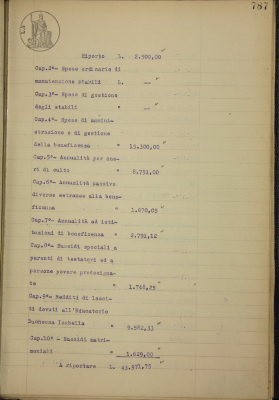 787
Riporto L. 2.900,00
Cap.2°- Spese ordinarie di
manutenzione stabili L. --
Cap.3°- Spese di gestione
degli stabili " --
Cap.4°- Spese di ammini-
strazione e di gestione
della beneficenza " 15.300,00
Cap.5°- Annualità per one-
ri di culto " 2.751,00
Cap.6°- Annualità passive
diverse estranee alla bene-
ficenza " 1.670,05
Cap.7°- Annualità ad isti-
tuzioni di beneficenza " 2.792,12
Cap.8°- Sussidi speciali a
parenti di testatori ed a
persone povere predesigna-
te " 1.748,25
Cap.9°- Redditi di lasci-
ti dovuti all'Educatorio
Duchessa Isabella " 9.982,33
Cap.10° - Sussidi matri-
moniali "
A riportare L.